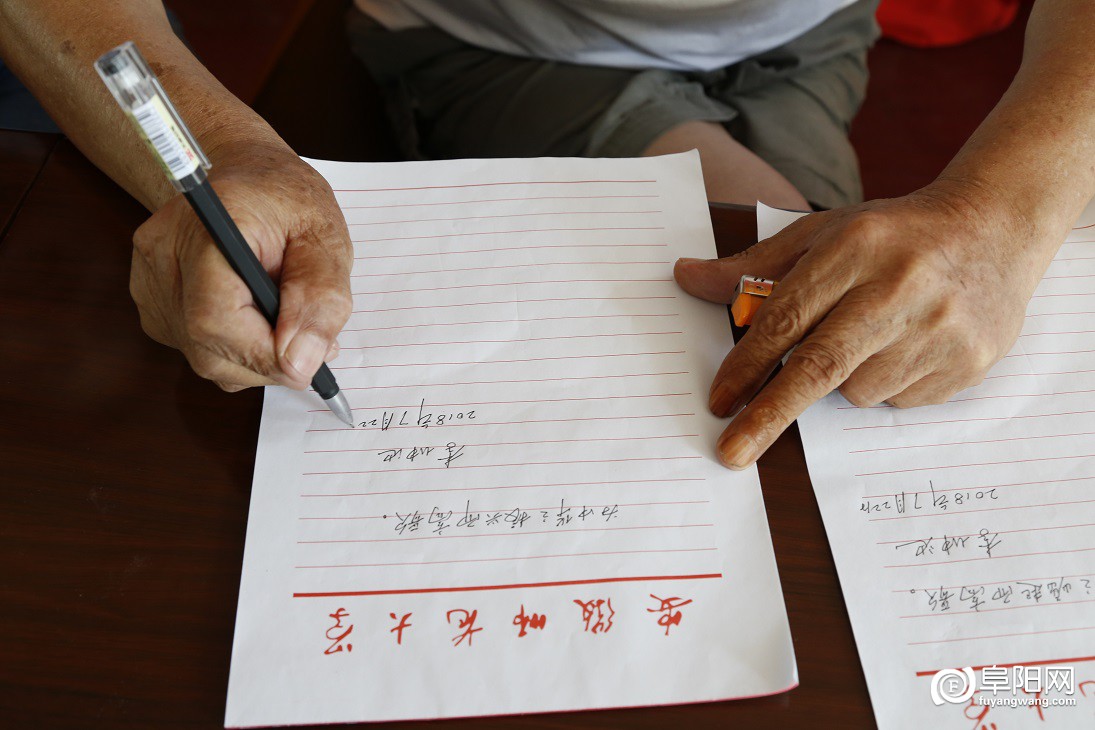 安徽师范大学
为中华之振兴而高歌。
李坤池
2018年7月22
大学
之崛起而高歌。
李坤池
2018年7月22日
阜阳网
fuyangwang.com